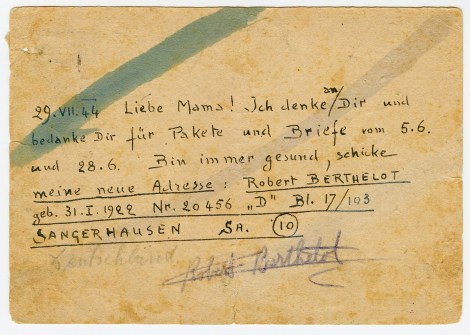 29.VII.44 Liebe Mama! Ich denke an Dir und
bedanke Dir für Pakete und Briefe vom 5.6.
und 28.6. Bin immer gesund, schicke
meine neue Adresse: Robert BERTHELOT
geb. 31.I.1922 Nr. 20456 "D" Bl. 17/103
SANGERHAUSEN SA. 10
Deutschland
Robert Berthelot